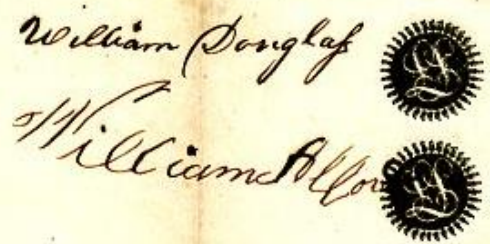 William Douglass
William
LS
LS